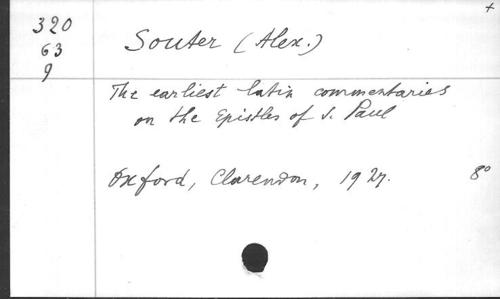 +
320
63
9
Souter (Alex.)
The earliest latin commentaries
on the Epistles of S. Paul
Oxford, Clarendon, 1927. 8°